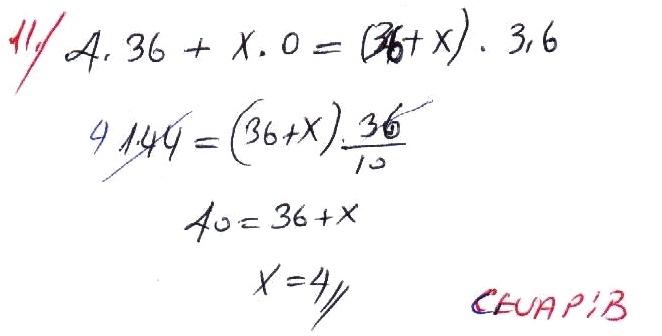 11./ 4. 36 + X. 0 = (36+X). 3,6
4 144 = (36+X). 36/10
40 = 36 + X
X = 4//
CEVAP: B